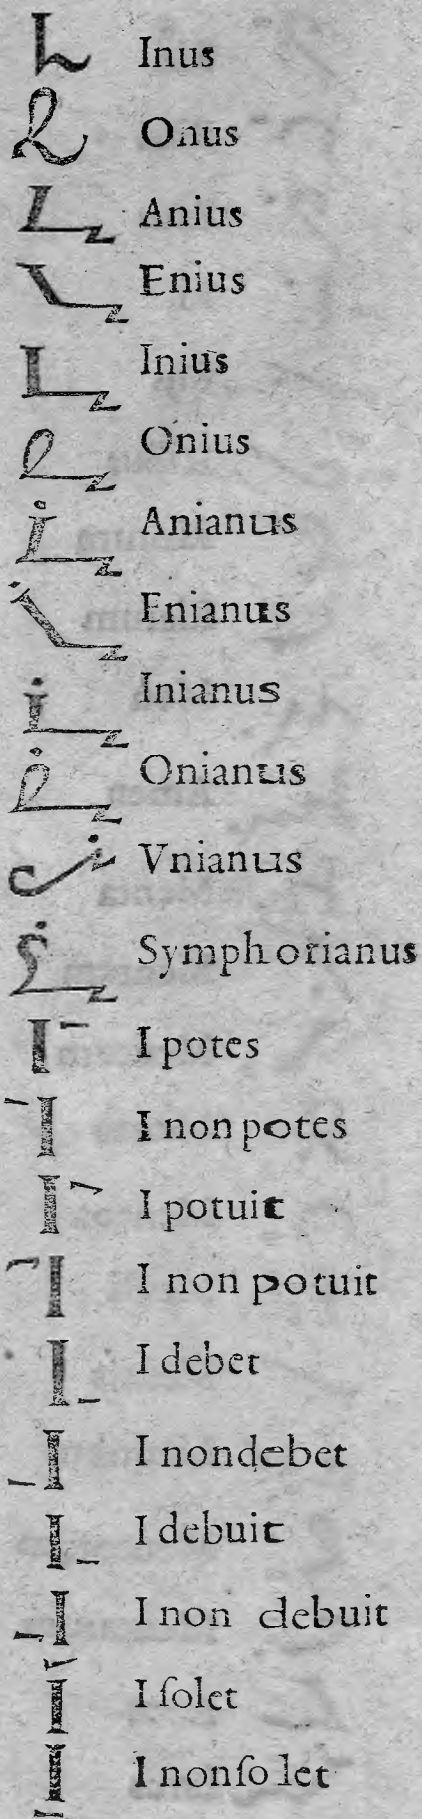 Inus
Onus
Anius
Enius
Inius
Onius
Anianus
Enianus
Inianus
Onianus
Vnianus
Symphorianus
I potes
I non potes
I potuit
I non potuit
I debet
I nondebet
I debuit
I non debuit
I ſolet
I nonſolet